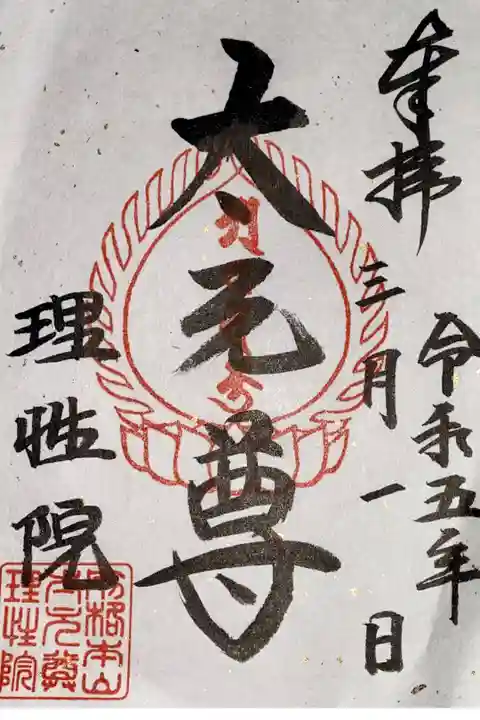 奉拝
令和五年
三月一日
大元尊
理性院
別格本山
大元尊
理性院